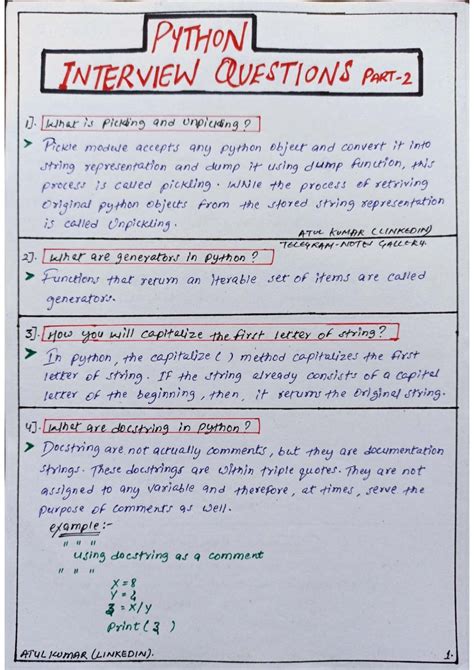 PYTHON
INTERVIEW QUESTIONS PART-2
1]. What is pickling and Unpickling?
➤ Pickle module accepts any python object and convert it into
string representation and dump it using dump function, this
process is called pickling. While the process of retriving
original python objects from the stored string representation
is called Unpickling.
ATUL KUMAR (LINKEDIN)
TELEGRAM-NOTES GALLERY.
2]. What are generators in python?
➤ Functions that return an iterable set of items are called
generators.
3]. How you will capitalize the first letter of string?
➤ In python, the capitalize() method capitalizes the first
letter of string. If the string already consists of a capital
letter of the beginning, then, it returns the original string.
4]. What are docstring in python?
➤ Docstring are not actually comments, but they are documentation
strings. These docstrings are within triple quotes. They are not
assigned to any variable and therefore, at times, serve the
purpose of comments as well.
example:-
" " "
Using docstring as a comment
" " "
X=8
Y=2
Z=X/Y
Print(Z)
ATUL KUMAR (LINKEDIN).
1.